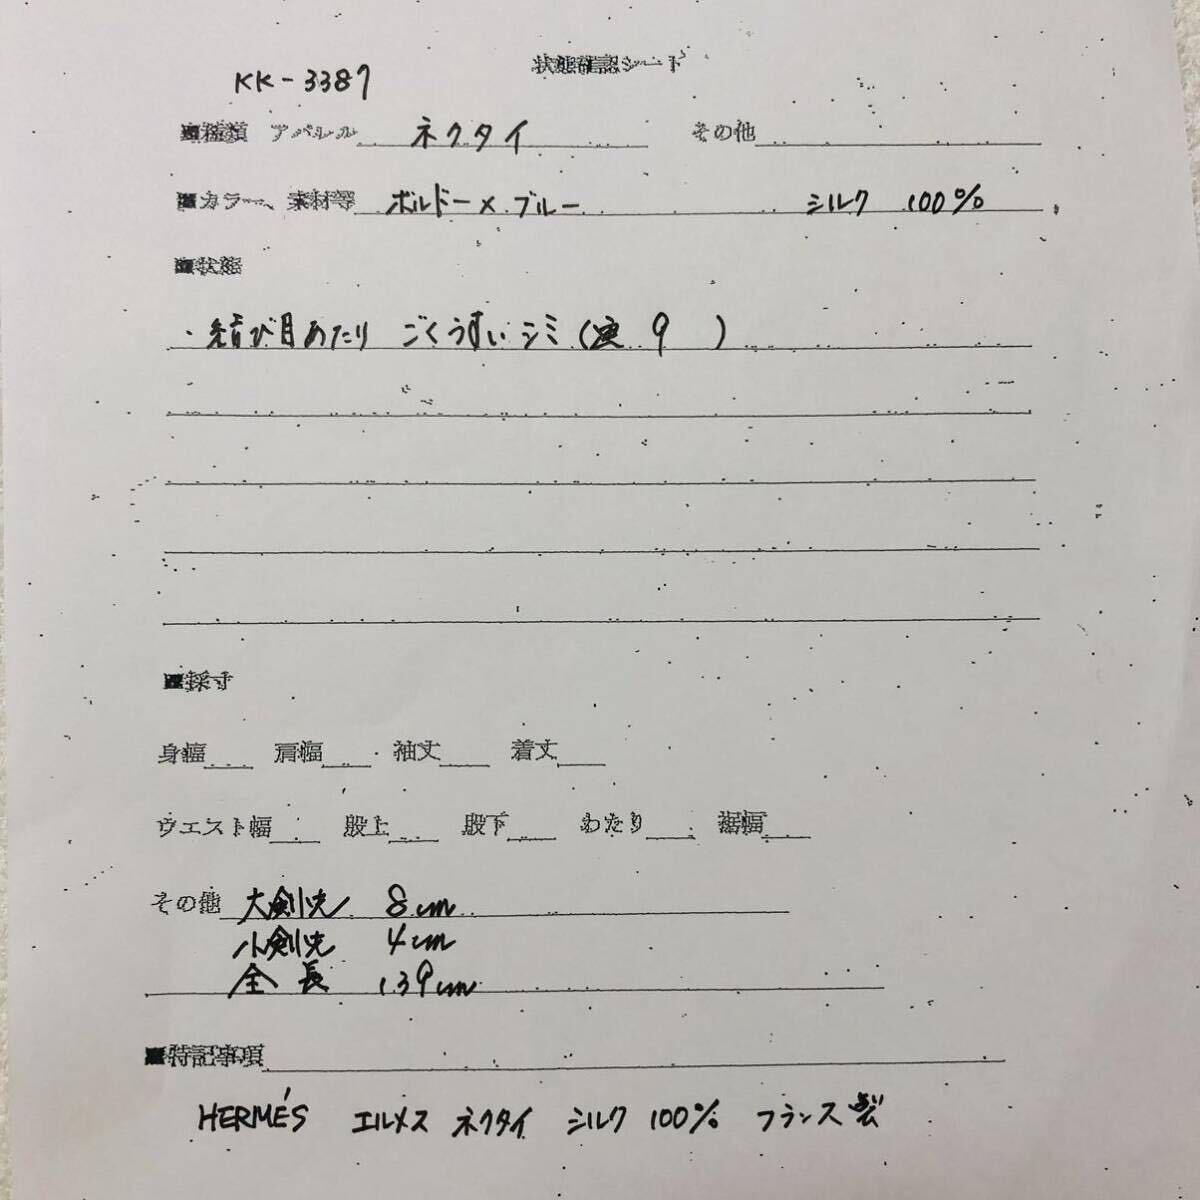 状態確認シート
KK-3387
■種類 アパレル ネクタイ その他
■カラー、素材等 ボルドー×ブルー シルク 100%
■状態
・結び目あたり ごくうすいシミ( 9 )
■採寸
身幅 肩幅 袖丈 着丈
ウエスト幅 股上 股下 わたり 裾幅
その他 大剣先 8cm
小剣先 4cm
全長 139cm
■特記事項
HERMÉS エルメス ネクタイ シルク 100% フランス製